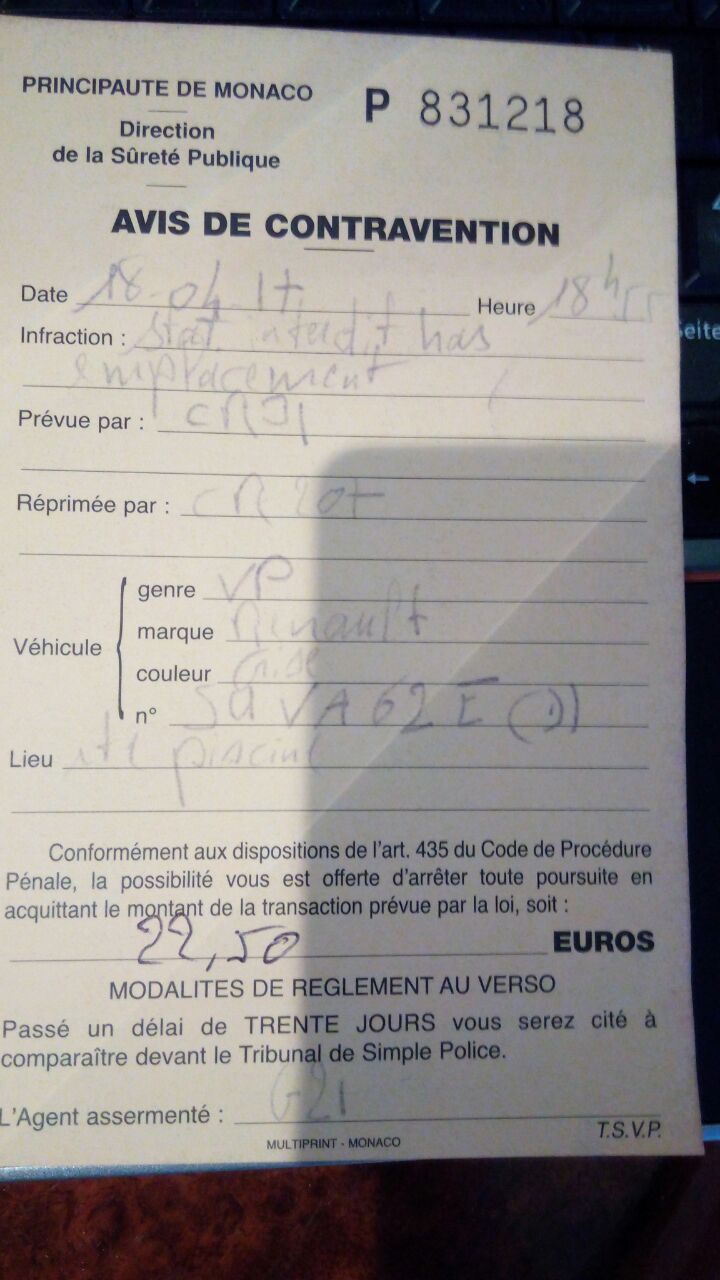 PRINCIPAUTE DE MONACO
P 831218
Direction
de la Sûreté Publique
AVIS DE CONTRAVENTION
Date 18-04-17 Heure 18h55
Infraction : Stat. interdit hors
emplacement
Prévue par :
Réprimée par : CR 207
Véhicule
genre VP
marque Renault
couleur Grise
n° VA 62 E
Lieu piscine
Conformément aux dispositions de l'art. 435 du Code de Procédure
Pénale, la possibilité vous est offerte d'arrêter toute poursuite en
acquittant le montant de la transaction prévue par la loi, soit :
22,50 EUROS
MODALITES DE REGLEMENT AU VERSO
Passé un délai de TRENTE JOURS vous serez cité à
comparaître devant le Tribunal de Simple Police.
L'Agent assermenté : G21
T.S.V.P.
MULTIPRINT - MONACO
Seite